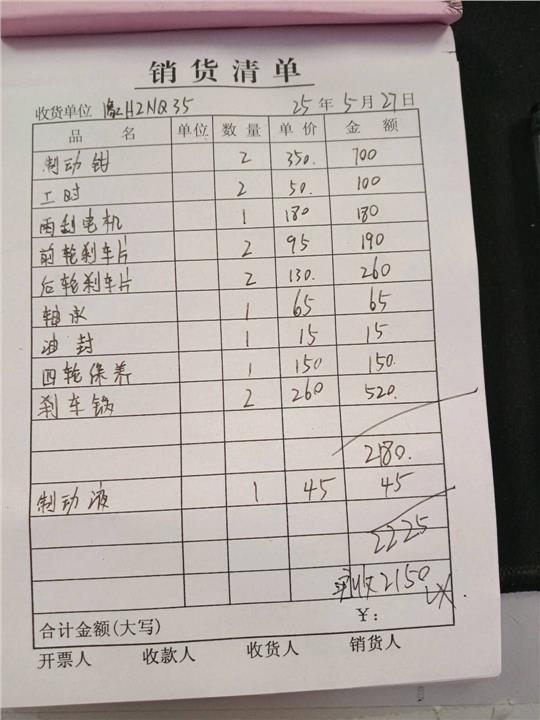 销货清单
收货单位 H2NQ35 25年5月27日
品 名 单位 数量 单价 金额
制动钳 2 350. 700
工时 2 50. 100
雨刮电机 1 180 180
前轮刹车片 2 95 190
后轮刹车片 2 130. 260
轴承 1 65 65
油封 1 15 15
四轮保养 1 150 150.
刹车锅 2 260 520.
2180.
制动液 1 45 45
2225
实收2150
合计金额(大写) ¥:
开票人 收款人 收货人 销货人